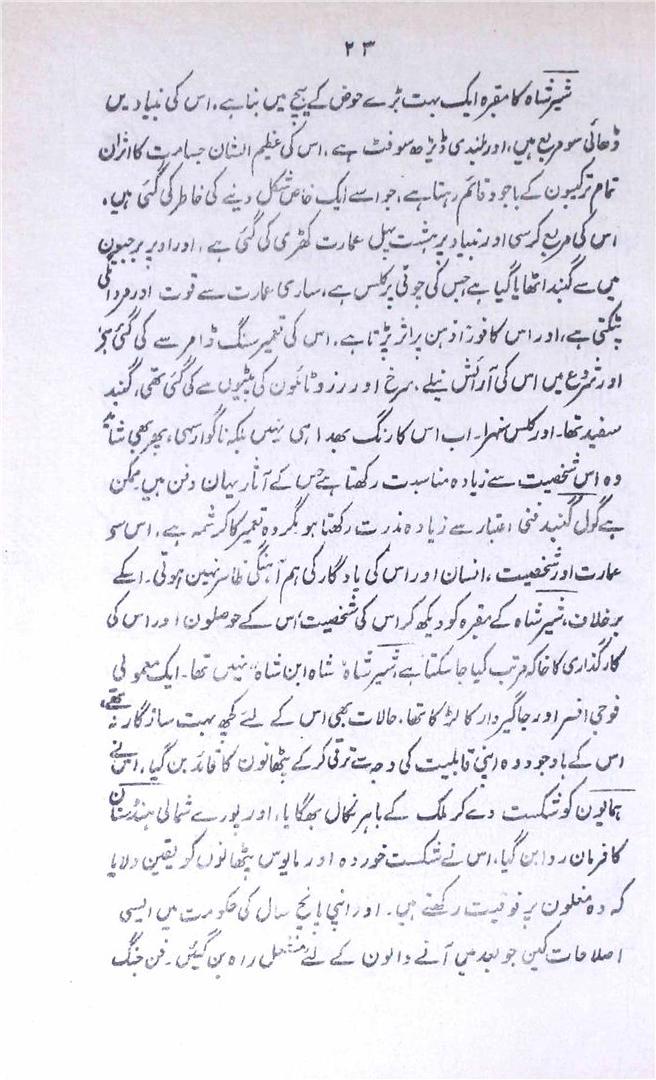 ۲۳
شیر شاہ کا مقبرہ ایک بہت بڑے حوض کے بیچ میں بنا ہے۔ اس کی بنیادیں
ڈھائی سو مربع ہیں، اور بلندی ڈیڑھ سو فٹ ہے۔ اس کی عظیم الشان جسامت کا اثر ان
تمام ترکیبون کے باجود قائم رہتا ہے، جو اسے ایک خاص شکل دینے کی خاطر کی گئی ہیں۔
اس کی مربع کرسی اور بنیاد پر ہشت پہل عمارت کھڑی کی گئی ہے، اور اوپر برجیون
میں سے گنبد اٹھایا گیا ہے، جس کی چوٹی پر کلس ہے، ساری عمارت سے قوت اور مردانگی
ٹپکتی ہے، اور اس کا فوراً ذہن پر اثر پڑتا ہے۔ اس کی تعمیر سنگ سے کی گئی ہے
اور شروع میں اس کی آرائش نیلے، سرخ اور زرد ٹائلون کی پٹیوں سے کی گئی تھی، گنبد
سفید تھا۔ اور کلس سنہرا۔ اب اس کا رنگ بھدا ہی نہیں بلکہ ناگوار سہی، پھر بھی شاید
وہ اس شخصیت سے زیادہ مناسبت رکھتا ہے جس کے آثار یہان دفن ہیں ممکن
ہے گول گنبد فنی اعتبار سے زیادہ ندرت رکھتا ہو مگر وہ تعمیر کا کرشمہ ہے۔ اس سے
عمارت اور شخصیت، انسان اور اس کی یادگار کی ہم آہنگی ظاہر نہین ہوتی۔ اسکے
برخلاف، شیر شاہ کے مقبرہ کو دیکھ کر اس کی شخصیت، اس کے حوصلون اور اس کی
کارگذاری کا خاکہ مرتب کیا جا سکتا ہے، شیر شاہ "شاہ ابن شاہ" نہیں تھا۔ ایک معمولی
فوجی افسر اور جاگیردار کا لڑکا تھا، حالات بھی اس کے لئے کچھ بہت سازگار نہ تھے،
اس کے باوجود وہ اپنی قابلیت کی وجہ سے ترقی کرکے پٹھانون کا قائد بن گیا، اس نے
ہمایون کو شکست دے کر ملک کے باہر نکال بھگایا، اور پورے شمالی ہندستان
کا فرمان روا بن گیا، اس نے شکست خوردہ اور مایوس پٹھانوں کو یقین دلایا
کہ وہ مغلون پر فوقیت رکھتے ہیں۔ اور اپنی پانچ سال کی حکومت میں ایسی
اصلاحات کین جو بعد میں آنے والون کے لئے مشعل راہ بن گئیں۔ فن جنگ